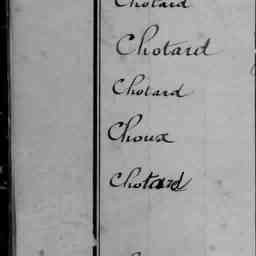 Chotard
Chotard
Chotard
Choux
Chotard